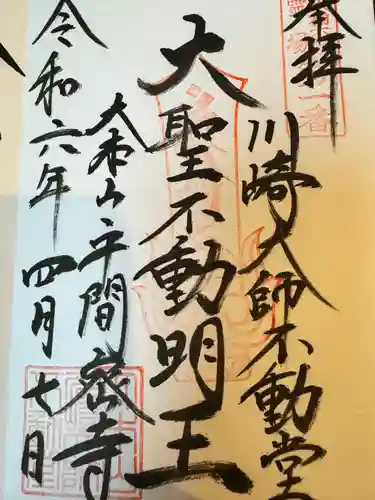 奉拝
川崎大師不動堂
大聖不動明王
大本山平間寺
令和六年四月七日